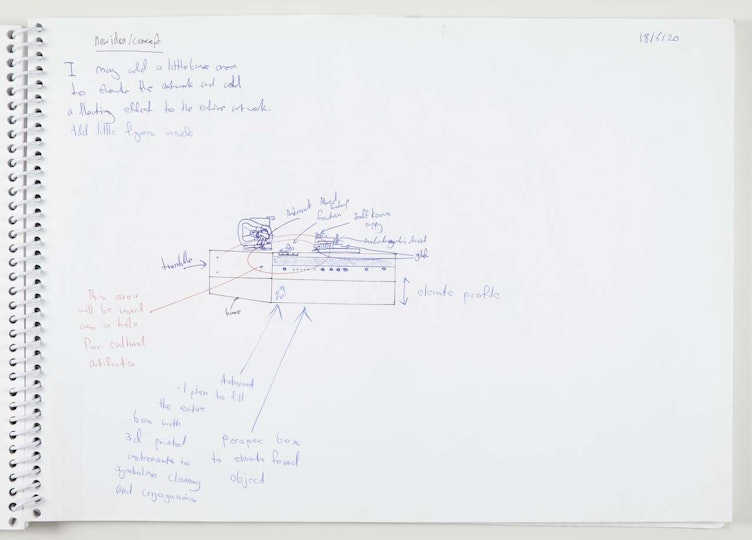 New idea/concept
18/5/20
I may add a little base area
to elevate the artwork and add
a floating effect to the entire artwork.
Add little figures inside
Astronaut
turntable
base
elevate profile
This area
will be used
as a hole
for cultural
artifacts
Astronaut
- I plan to fill
the entire
box with
3d printed
astronauts to
symbolise cloning
and cryogenics
perspex box
to elevate found
object